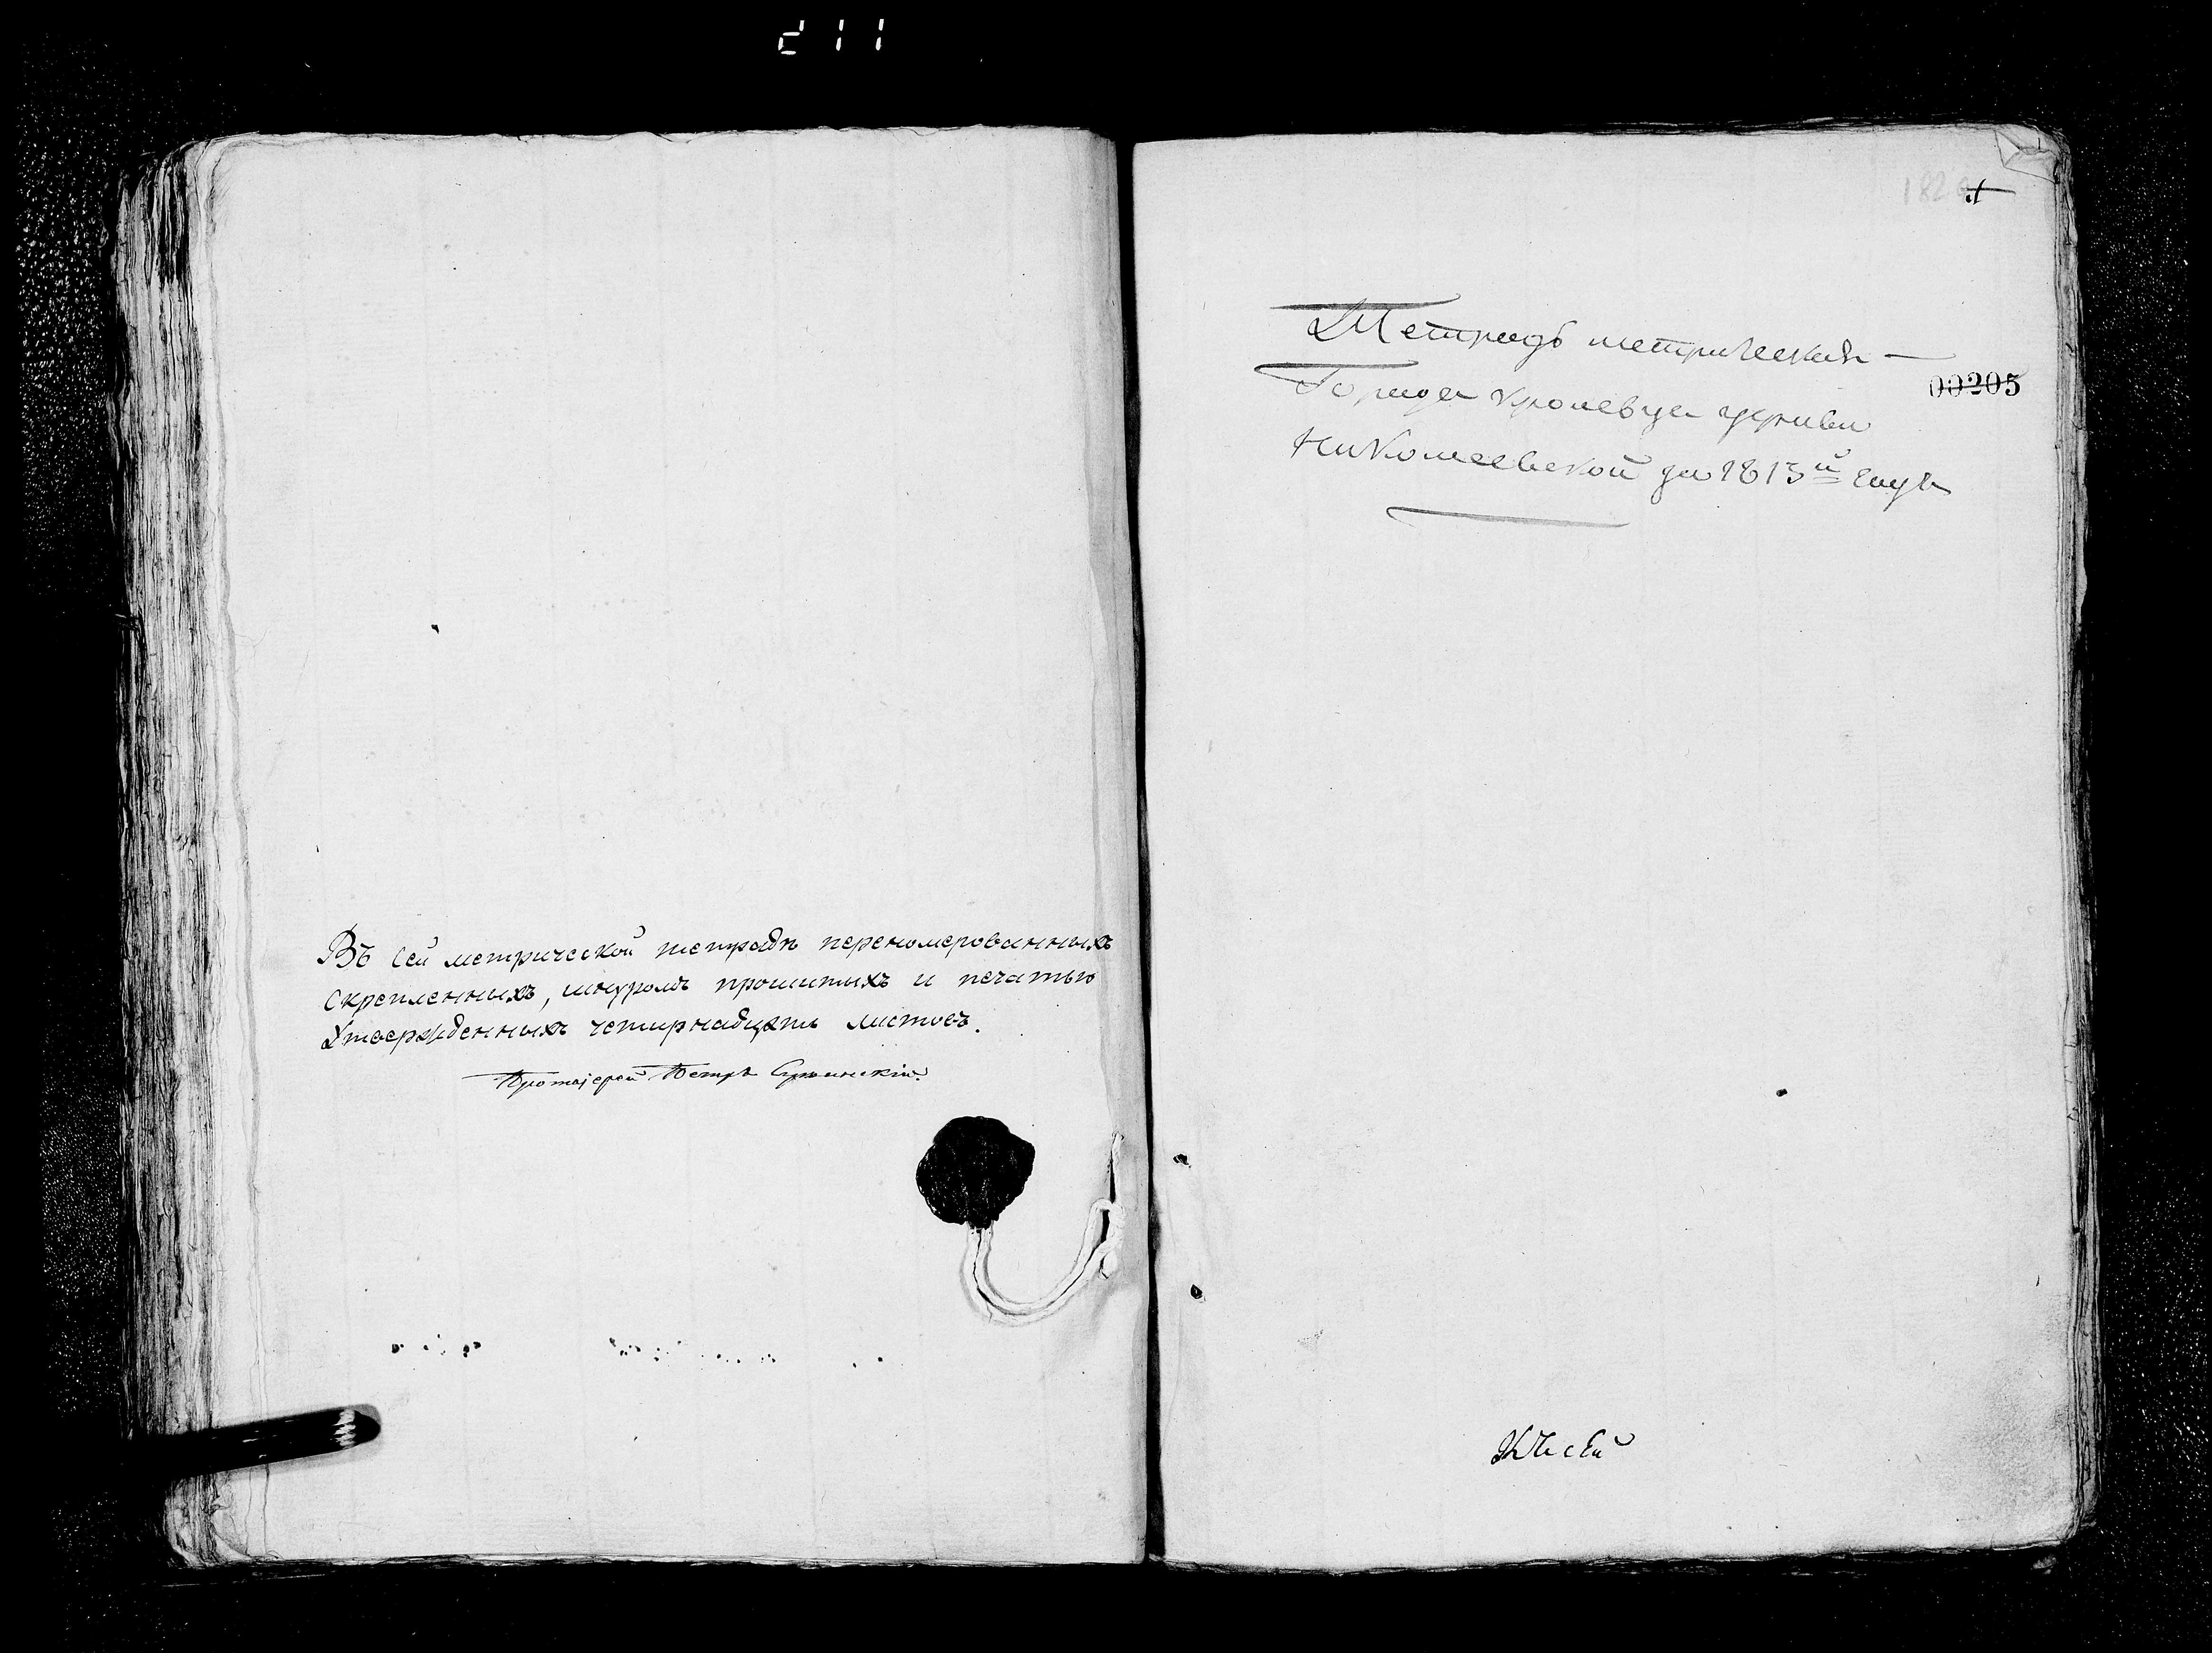 Въ сей метрической тетрадѣ переномерованныхъ
скрепленныхъ, шнуромъ прошитыхъ и печатью
Утвержденныхъ четырнадцать листовъ.
Протоіерей Петръ
182
00205
Тетрадь метрическая
Города Кролевца церкви
Николаевской за 1813й годъ
Къ сей